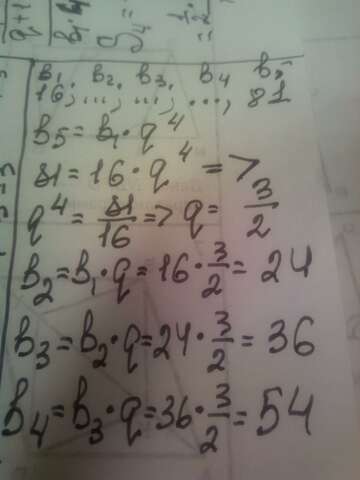 b₁ b₂ b₃ b₄ b₅
16; ..., ..., ..., 81
b₅ = b₁ · q⁴
81 = 16 · q⁴ =>
q⁴ = 81/16 => q = 3/2
b₂ = b₁ · q = 16 · 3/2 = 24
b₃ = b₂ · q = 24 · 3/2 = 36
b₄ = b₃ · q = 36 · 3/2 = 54